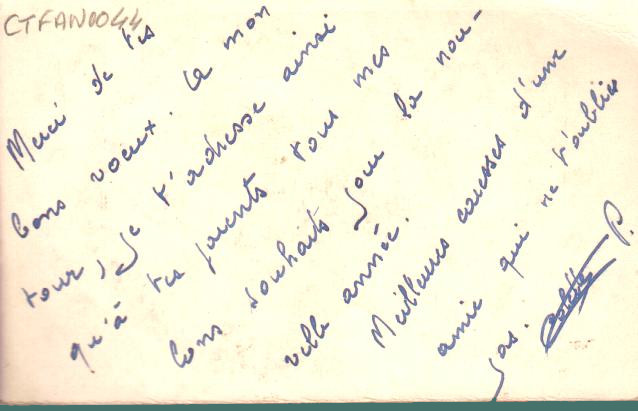 CTFAN0044
Merci de tes
bons voeux. A mon
tour, je t'adresse ainsi
qu'à tes parents tous mes
bons souhaits pour la nou-
velle année.
Meilleures caresses d'une
amie qui ne t'oublie
pas. Colette P.